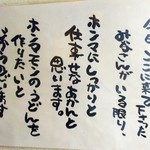 今日ここに来て下さった
みなさんがいる限り、
ホンマにしっかりと
仕事せなあかんと
思います。
ホンマモンのうどんを
作りたいと
思います